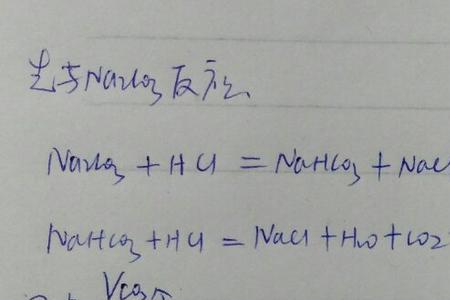 先与Na2CO3反应
Na2CO3 + HCl = NaHCO3 + NaCl
NaHCO3 + HCl = NaCl + H2O + CO2